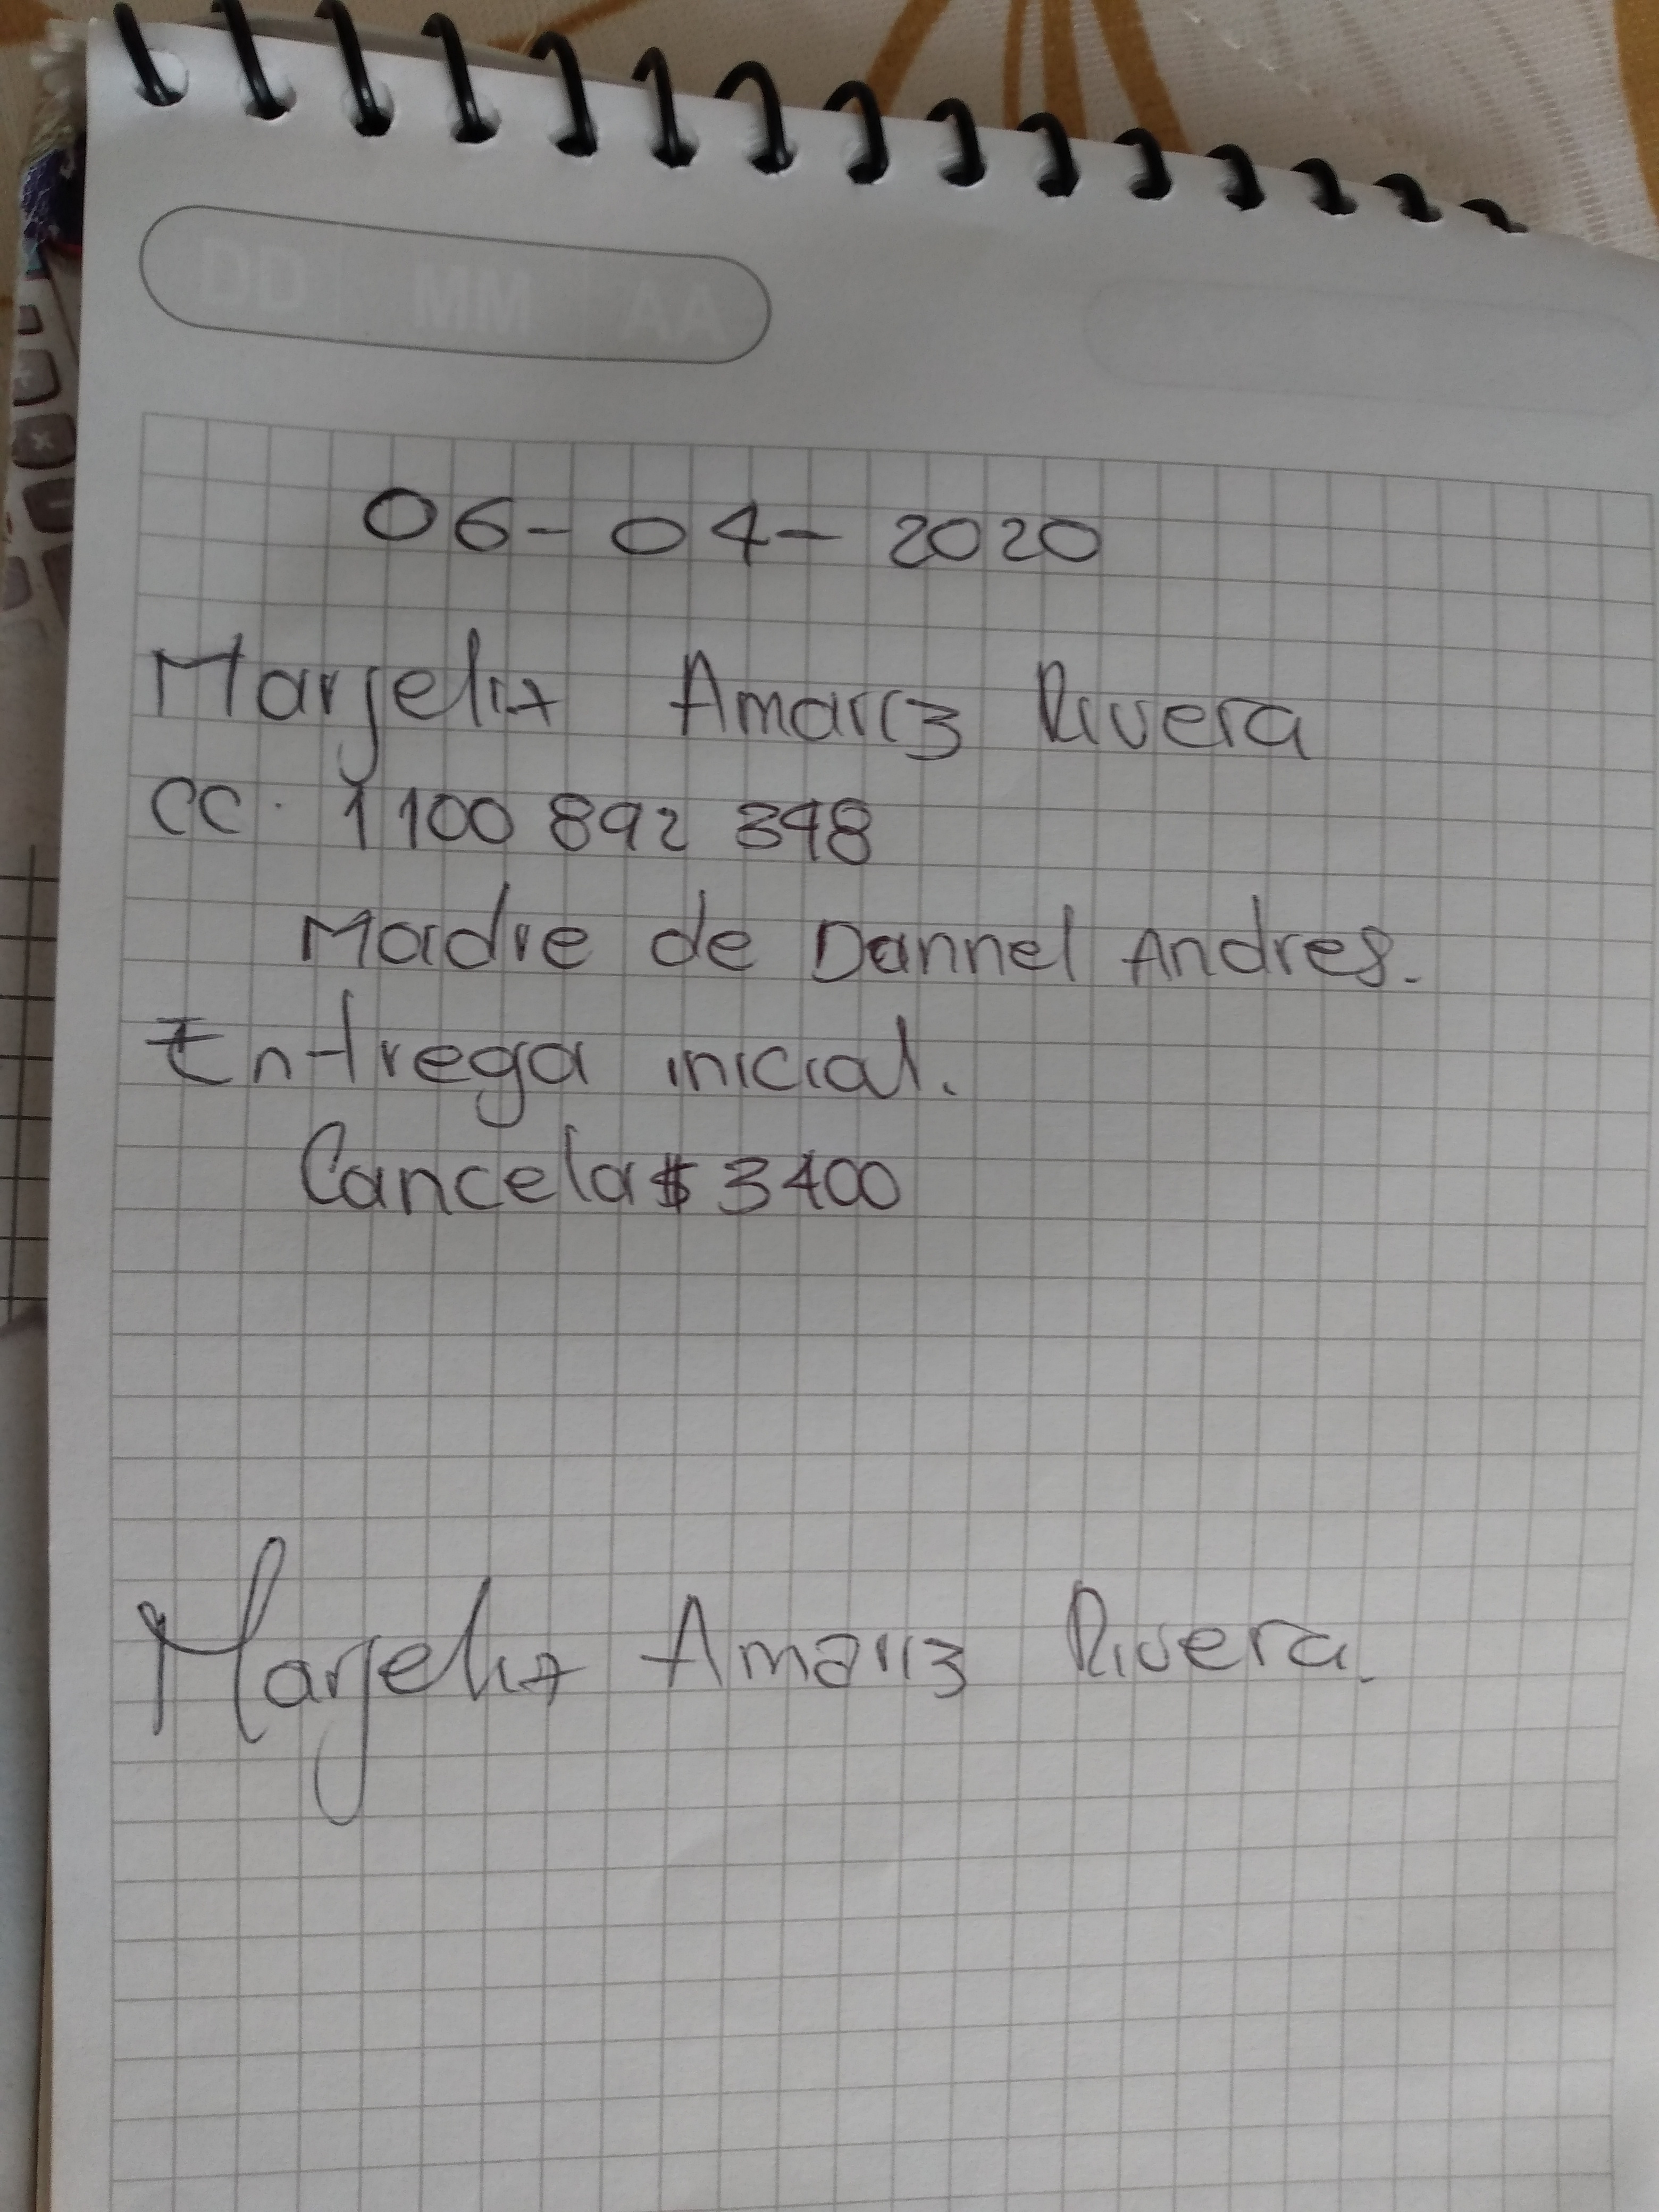 DD MM AA
06-04-2020
Marjelix Amariz Rivera
CC. 1100 892 398
Madre de Dannel Andres.
Entrega inicial.
Cancela $ 3400
Marjelix Amariz Rivera.